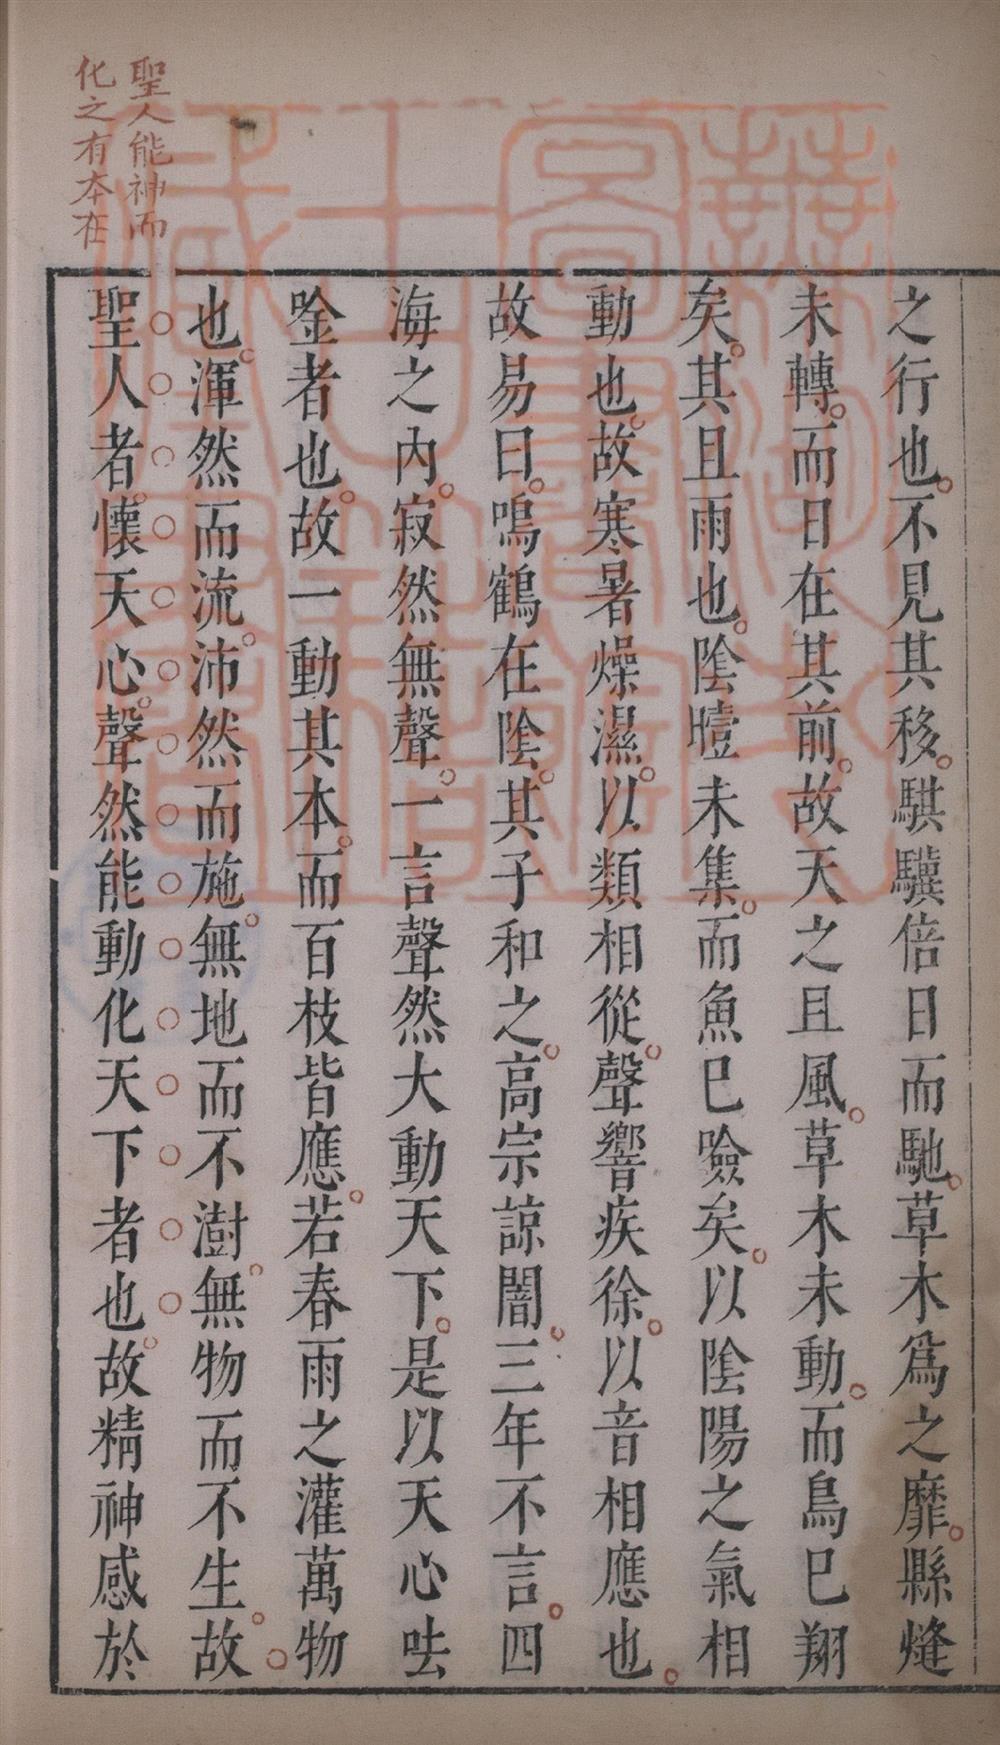 聖人能神而
化之有本在
之行也不見其移騏驥倍日而馳草木爲之靡縣烽
未轉而日在其前故天之且風草木未動而鳥巳翔
矣其且雨也陰曀未集而魚巳噞矣以陰陽之氣相
動也故寒暑燥濕以類相從聲響疾徐以音相應也
故易曰鳴鶴在陰其子和之高宗諒闇三年不言四
海之內寂然無聲一言聲然大動天下是以天心呿
唫者也故一動其本而百枝皆應若春雨之灌萬物
也渾然而流沛然而施無地而不澍無物而不生故
聖人者懷天心聲然能動化天下者也故精神感於